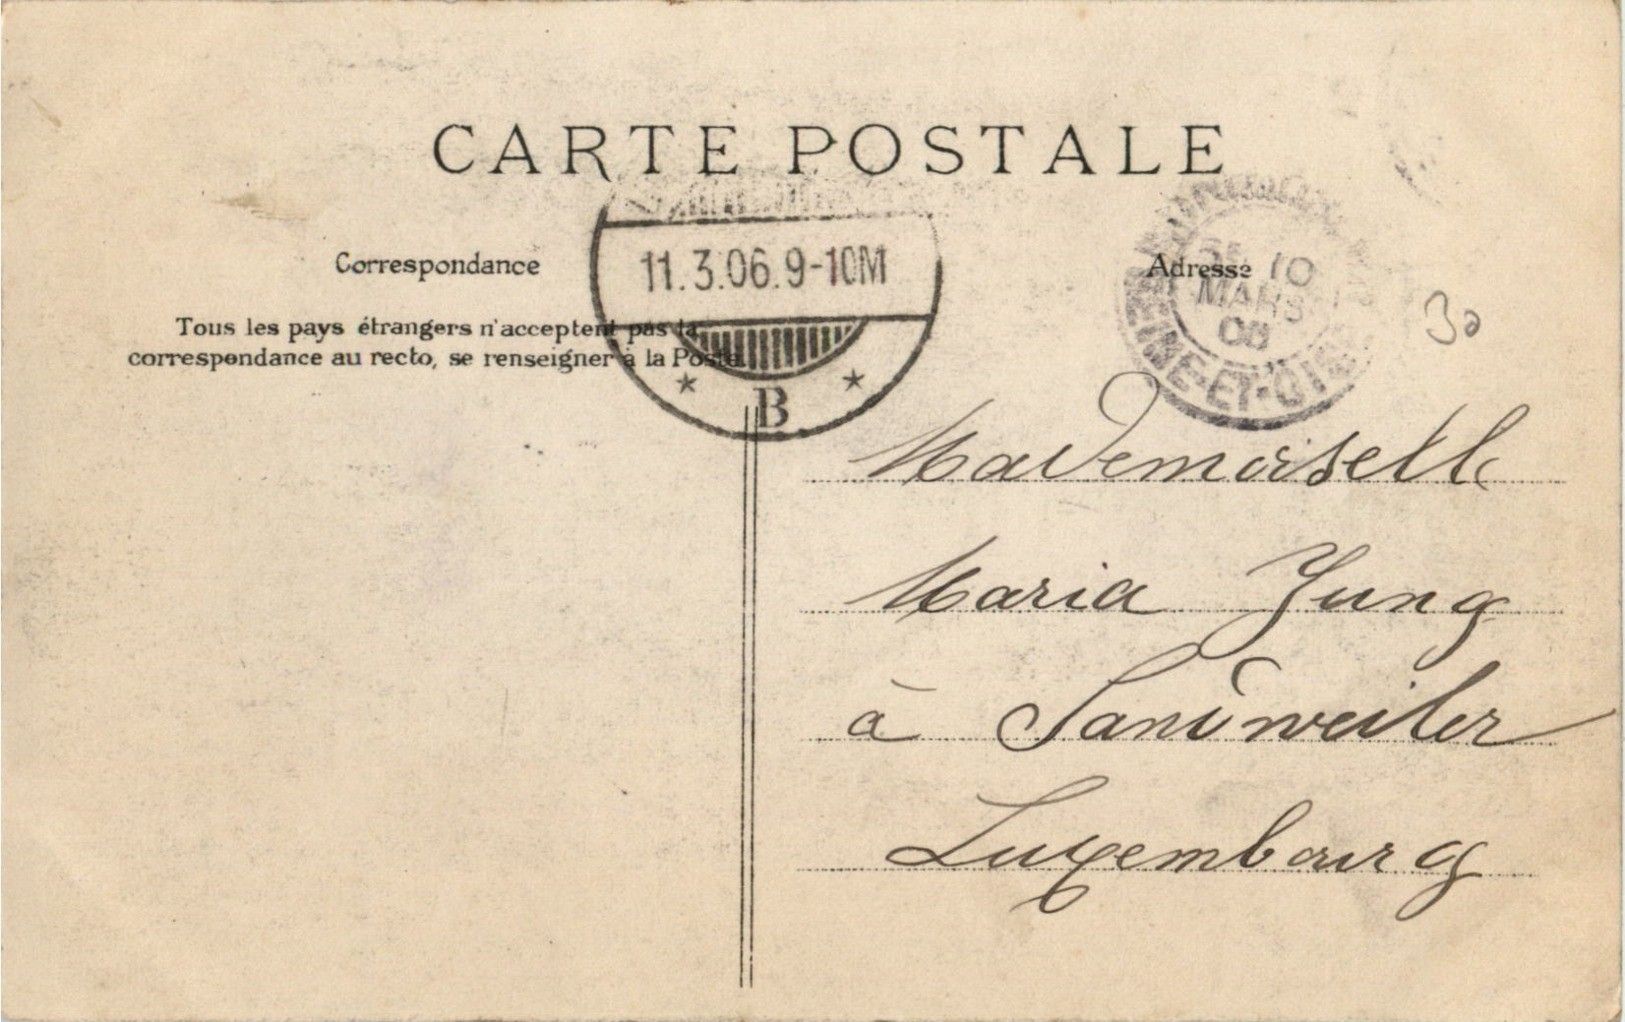 CARTE POSTALE
11.3.06.9-10M
B
Correspondance
Adresse
Tous les pays étrangers n'acceptent pas la
correspondance au recto, se renseigner à la Poste.
10
MARS
06
SEINE-ET-OISE
30
Mademoiselle
Maria Jung
à Sandweiler
Luxembourg